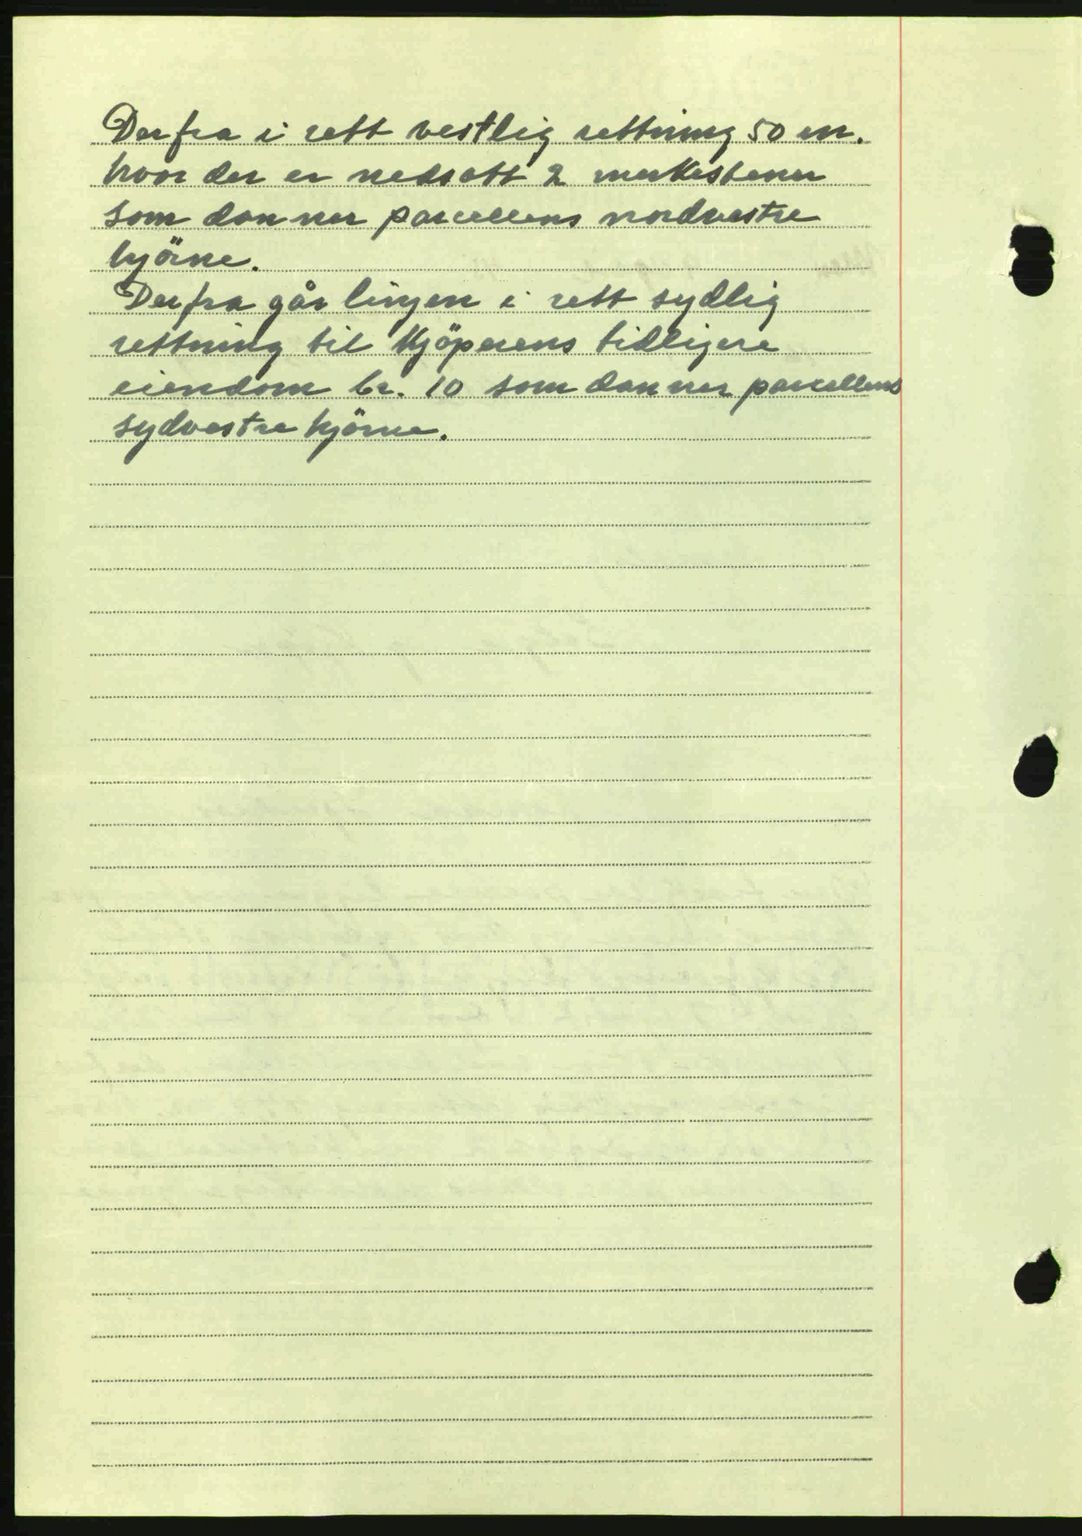 Derfra i rett vestlig rettning 50 m.
hvor der er nedsatt 2 merkestener
som danner parcellens nordvestre
hjörne.
Derfra går linjen i rett sydlig
rettning til kjöperens tidligere
eiendom br. 10 som danner parcellens
sydvestre hjörne.